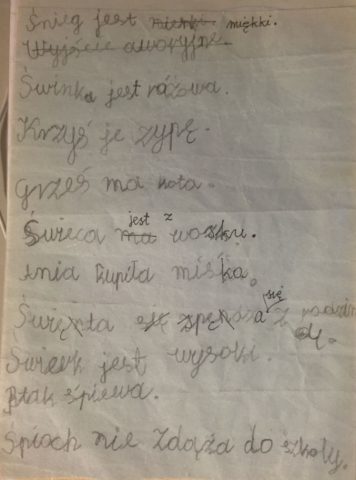 Śnieg jest mienki. miękki.
Wyjście aworyjne.
Świnka jest różowa.
Krzyś je zypę.
Grześ ma kota.
Świeca ma jest z wosku.
Ania kupiła miśka.
Święnta się spęnsza się z
Świerk jest wysoki.
Ptak śpiewa.
Spioch nie zdąża do szkoły.